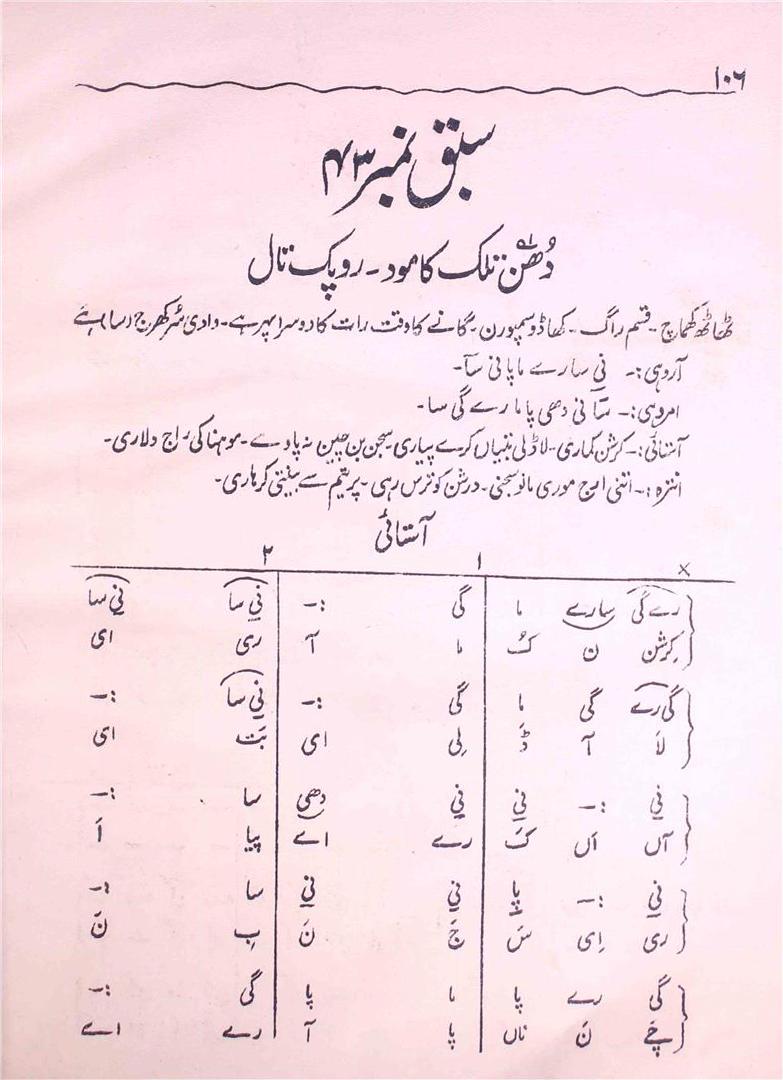 ۱۰۶
سبق نمبر ۴۳
دُھن تلک کامود۔ روپک تال
ٹھاٹھ کھماچ۔ قسم راگ۔ کھاڈو سمپورن۔ گانے کا وقت رات کا دوسرا پہر ہے۔ وادی سُر کھرج (سا) ہے
آروہی :۔ نِی سا رے ما پا نی سآ۔
امروہی :۔ سآ نی دھی پا ما رے گی سا۔
آستائی :۔ کرشن کماری۔ لاڈلی بتیاں کرے پیاری سجن بن چین نہ پاوے۔ موہنا کی راج دلاری۔
انترہ :۔ اتنی ارج موری مانو سجنی۔ درشن کو ترس رہی۔ پریتم سے بینتی کر ہاری۔
آستائی
× ۱ ۲
رے گی سارے ما گی :۔ نِی سا نِی سا
کِرشن ن کُ ما آ ری ای
گی رے گی ما گی :۔ نِی سا :۔
لَا آ ڈَ لِی ای بَت ای
نِی :۔ نِی نِی دھی سا :۔
آں اَں کَ رے اے پیا اَ
نِی :۔ پا نِی نِی سا :۔
ری اِی سَ جَ نَ بِ نَ
گی رے پا ما پا گی :۔
چَے نَ ناں پا آ رے اے